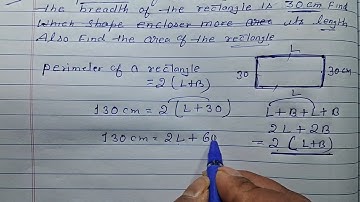 The breadth of the rectangle is 30 cm. Find
which shape encloser more area its length
Also Find the area of the rectangle
perimeter of a rectangle
= 2 (L+B)
130 cm = 2 (L+30)
130 cm = 2L + 60
L
30
30 cm
L
L+B+L+B
2L + 2B
= 2 (L+B)